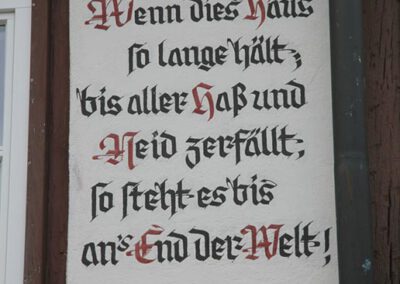 Wenn dies Haus
so lange hält,
bis aller Haß und
Neid zerfällt,
so steht es bis
an's End der Welt!